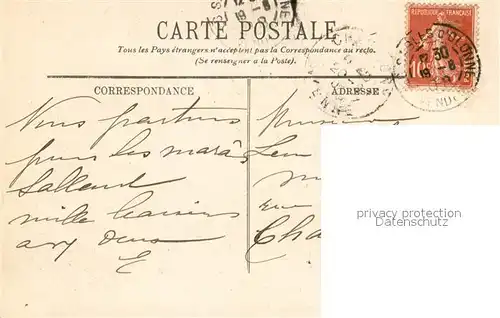 CARTE POSTALE
Tous les Pays étrangers n'acceptent pas la Correspondance au recto.
(Se renseigner à la Poste).
RÉPUBLIQUE FRANÇAISE
10
SABLES D'OLONNE
VENDÉE
CORRESPONDANCE
ADRESSE
Nous partons
pour les marais
Salland
mille baisers
aux deux
E
Monsieur
Leon
rue
Cha
privacy protection
Datenschutz